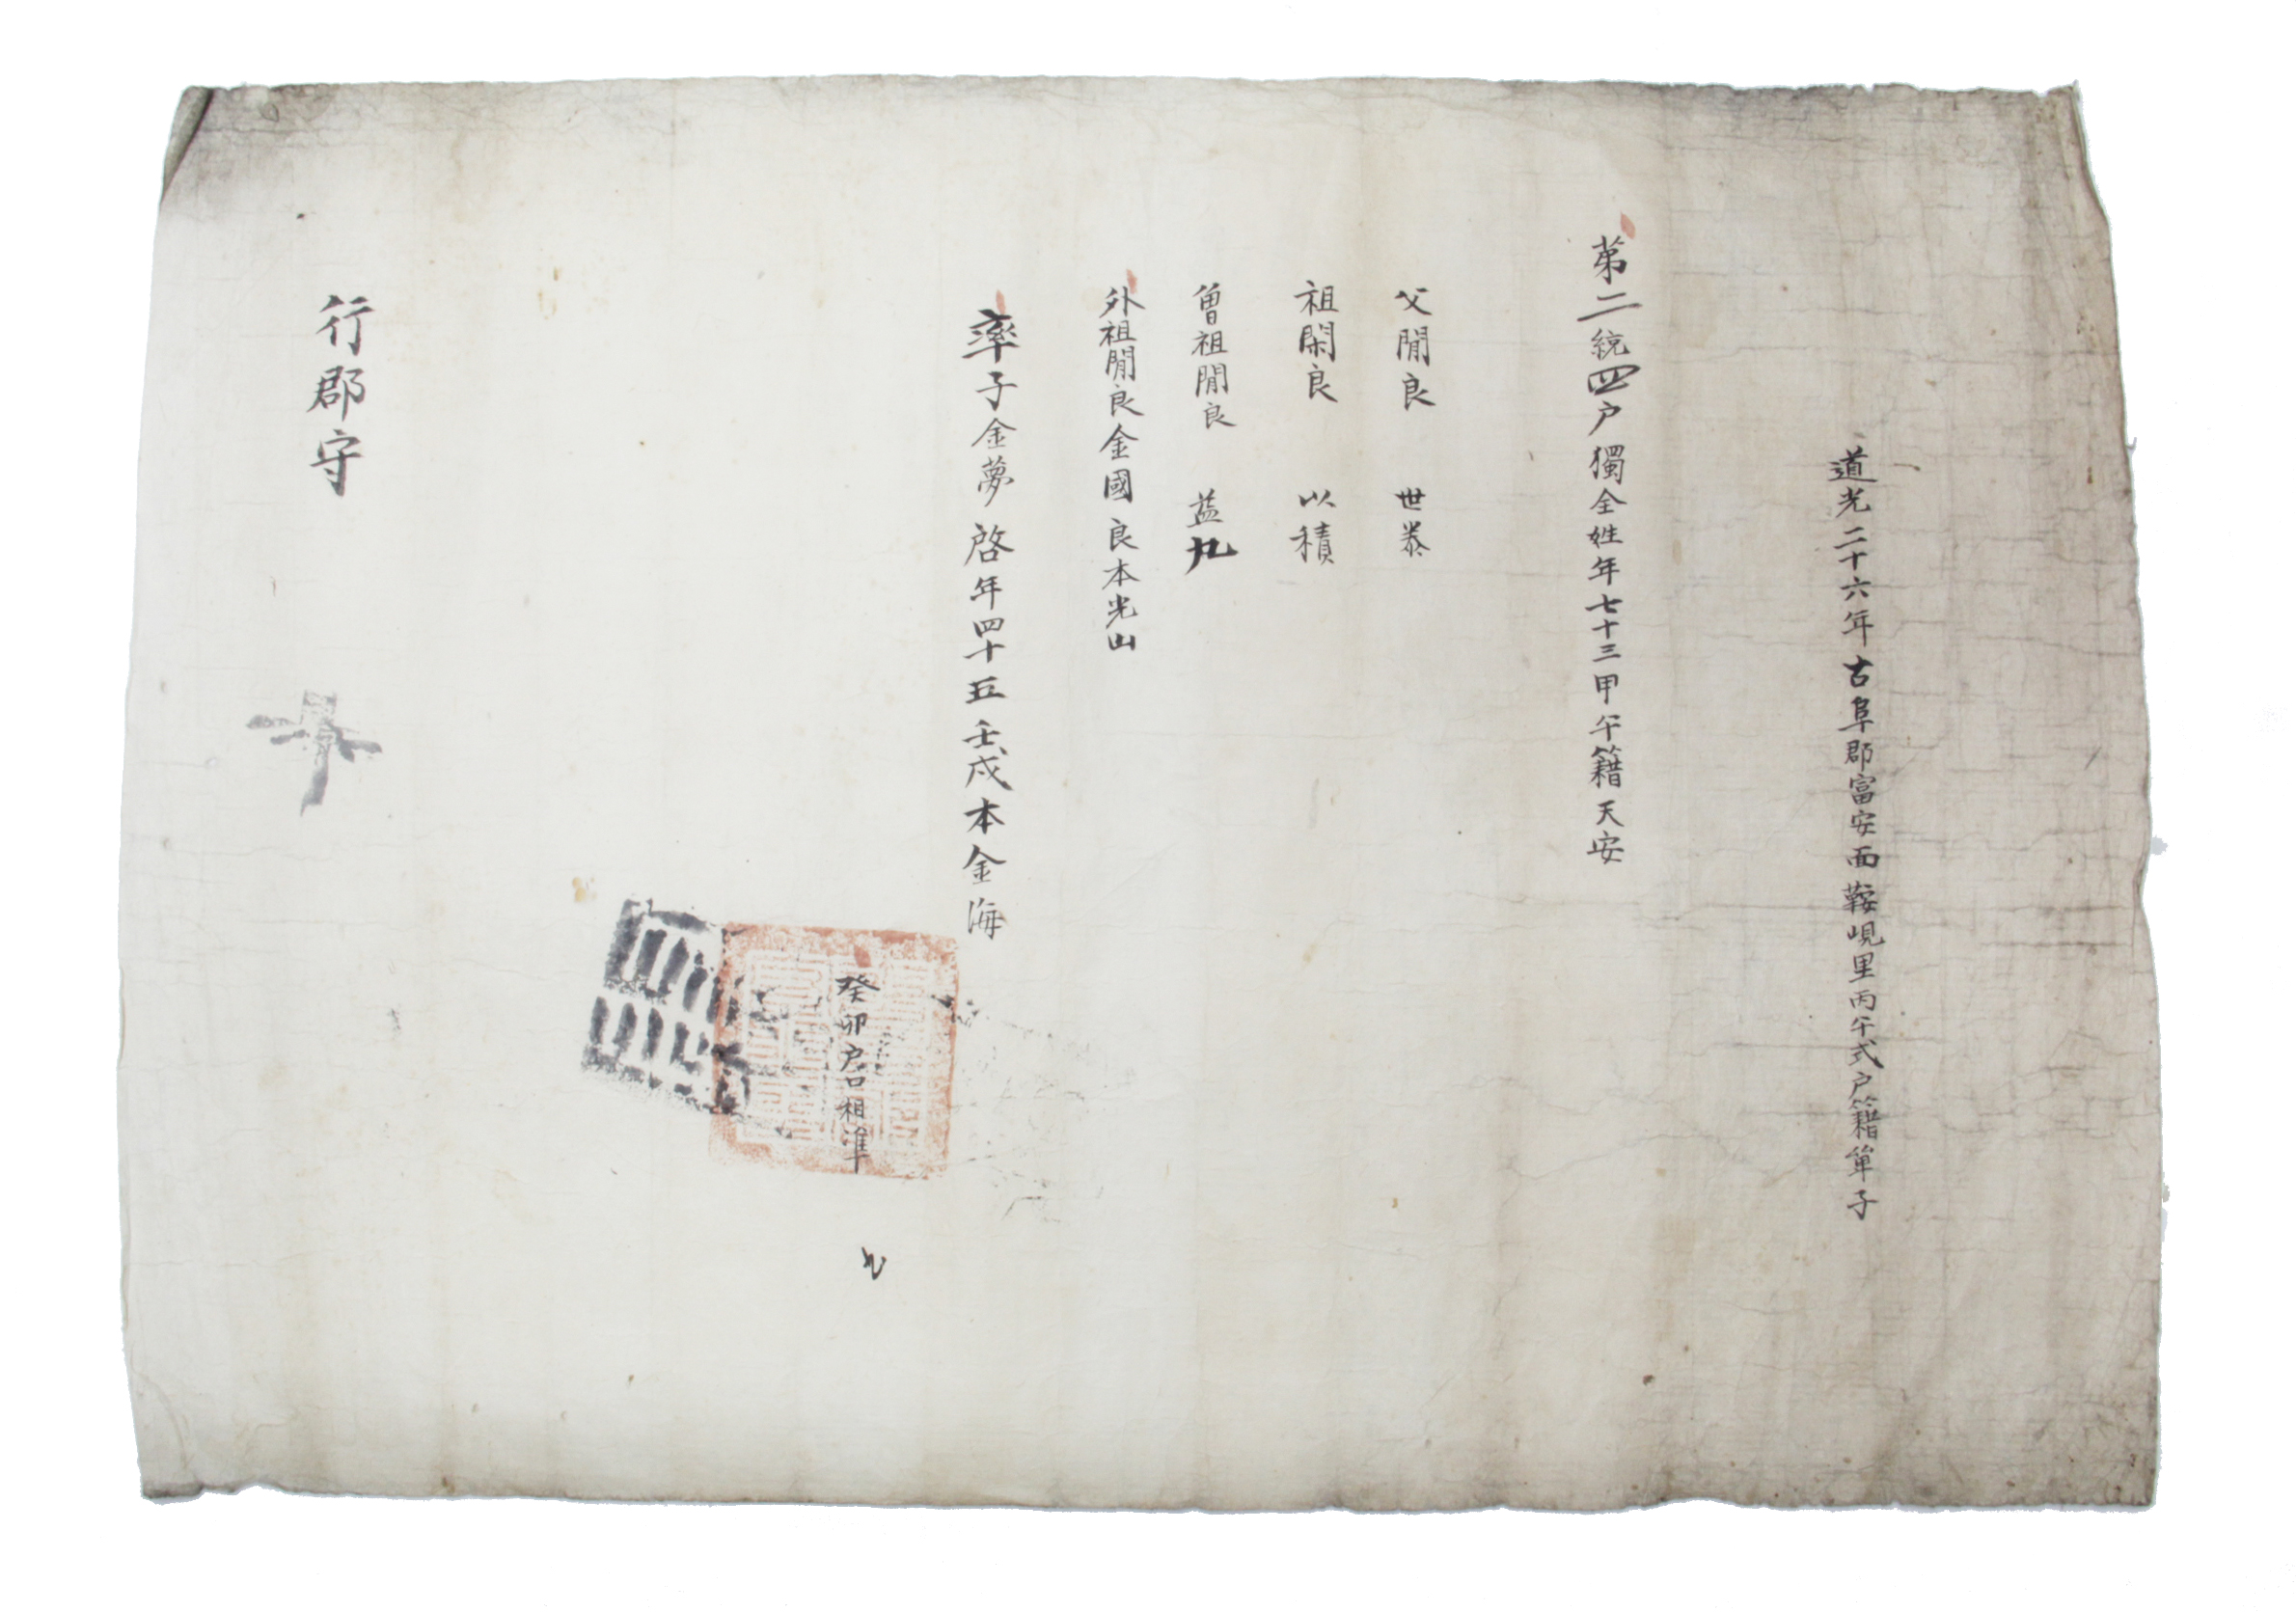 道光二十六年古阜郡富安面鞍峴里丙午式户籍單子
第二統四户獨全姓年七十三甲午籍天安
父閒良 世泰
祖閑良 以積
曾祖閒良 益九
外祖閒良金國良本光山
率子金夢啓年四十五壬戌本金海
癸卯户口相準
行郡守